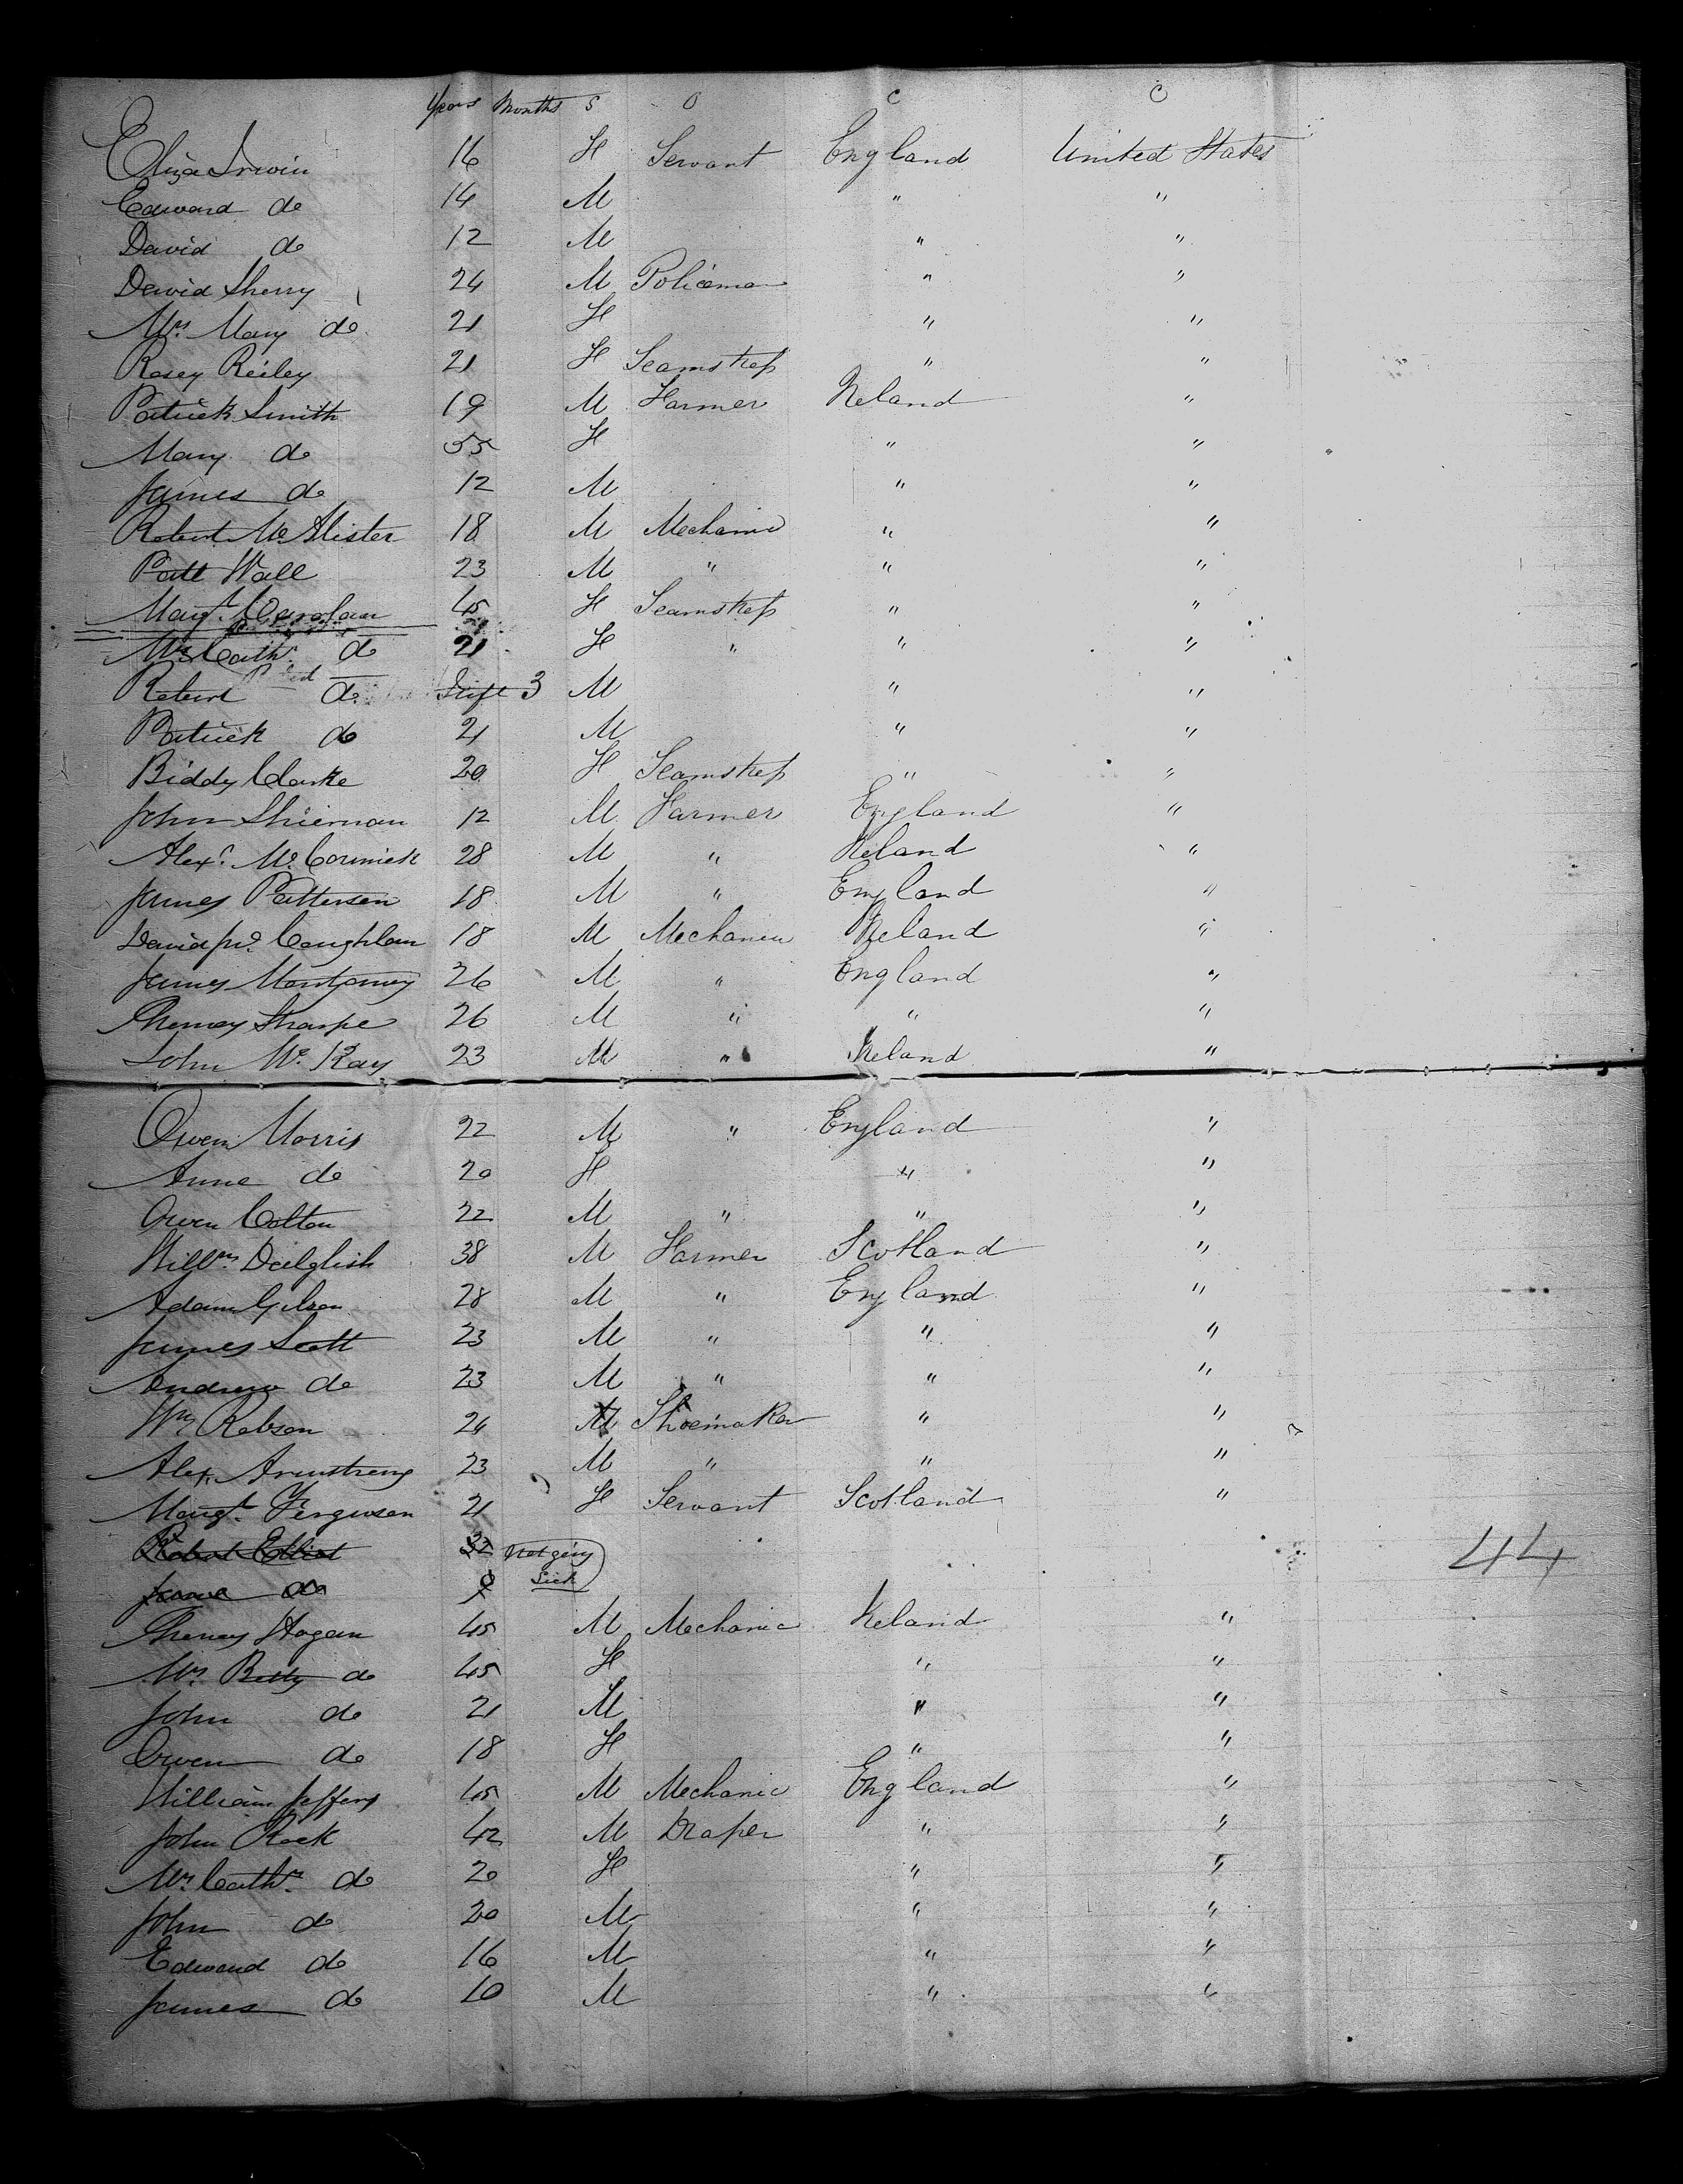 Years Months S O C C
Eliza Irwin 16 F Servant England United States
Edward do 14 M " "
David do 12 M " "
David Sherry 24 M Policeman " "
Mrs Mary do 21 F " "
Rosey Reiley 21 F Seamstress " "
Patrick Smith 19 M Farmer Ireland "
Mary do 55 F " "
James do 12 M " "
Robert McAlister 18 M Mechanic " "
Patt Wall 23 M " " "
Margt Carolan 45 F Seamstress " "
Mrs Cathe do 21 F " " "
Robert do Inft 3 M " "
Patrick do 21 M " "
Biddy Clarke 20 F Seamstress " "
John Shiernan 12 M Farmer England "
Alexr McCormick 28 M " Ireland "
James Patterson 18 M " England "
David Coughlan 18 M Mechanic Ireland "
James Montgomery 26 M " England "
Thomas Sharpe 26 M " " "
John McKay 23 M " Ireland "
Owen Morris 22 M " England "
Anne do 20 F " "
Owen Colton 22 M " " "
Willm Dalglish 38 M Farmer Scotland "
Adam Gilson 28 M " England "
James Scott 23 M " " "
Andrew do 23 M " " "
Wm Robson 24 M Shoemaker " "
Alexr Armstrong 23 M " " "
Margt Ferguson 21 F Servant Scotland "
Robert Elliot 32 Not going
Jane do 9 Sick
44
Thomas Hogan 45 M Mechanic Ireland "
Mrs Betty do 45 F " "
John do 21 M " "
Owen do 18 F " "
William Jeffers 45 M Mechanic England "
John Rock 42 M Draper " "
Mrs Cathe do 20 F " "
John do 20 M " "
Edward do 16 M " "
James do 10 M " "